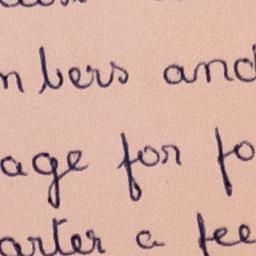 mbers and
age for fo
arter a fee